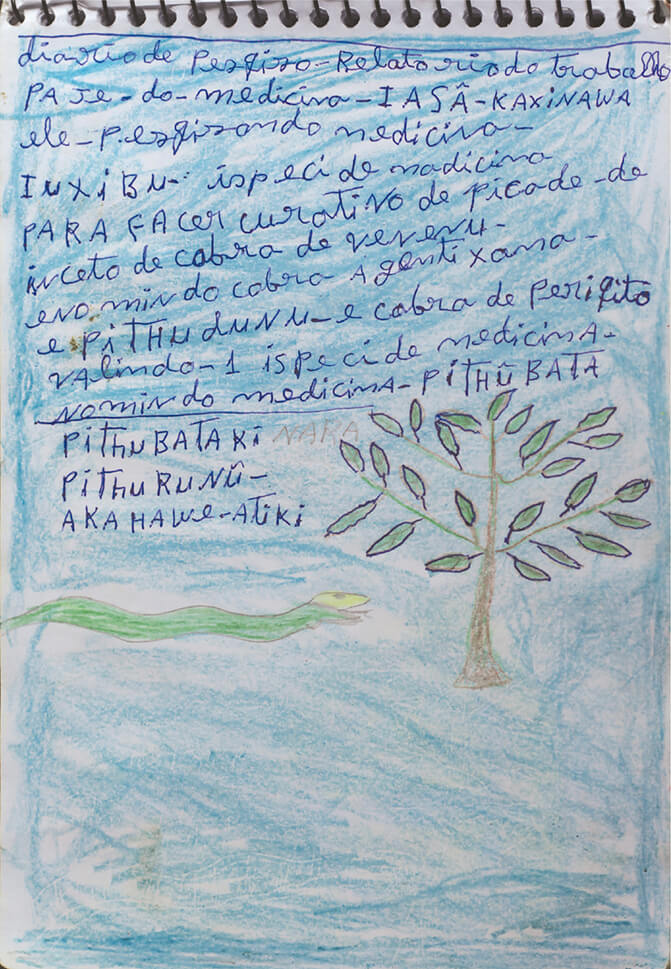 diario de Pesqiso-Relatorio do trabalho
PAJE-do-medicina-IASÂ-KAXiNAWA
ele-pesqisando medicina-
INXiBU- ispeci de madicina
PARA FACer curativo de picade-de
inceto de cobra de venenu-
enomindo cobra A genti xama-
e PiTHUdUNU-e cobra de periqito
valindo-1 ispeci de medicinA-
nomindo medicinA-PiTHÛBATA
PiTHUBATAKi NAKA
PiTHURUNÛ-
AKAHAWe-ATiKi